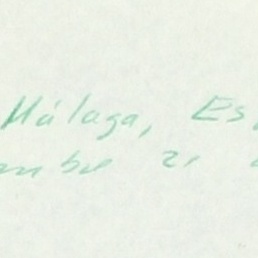 Málaga, Es
mbre 21